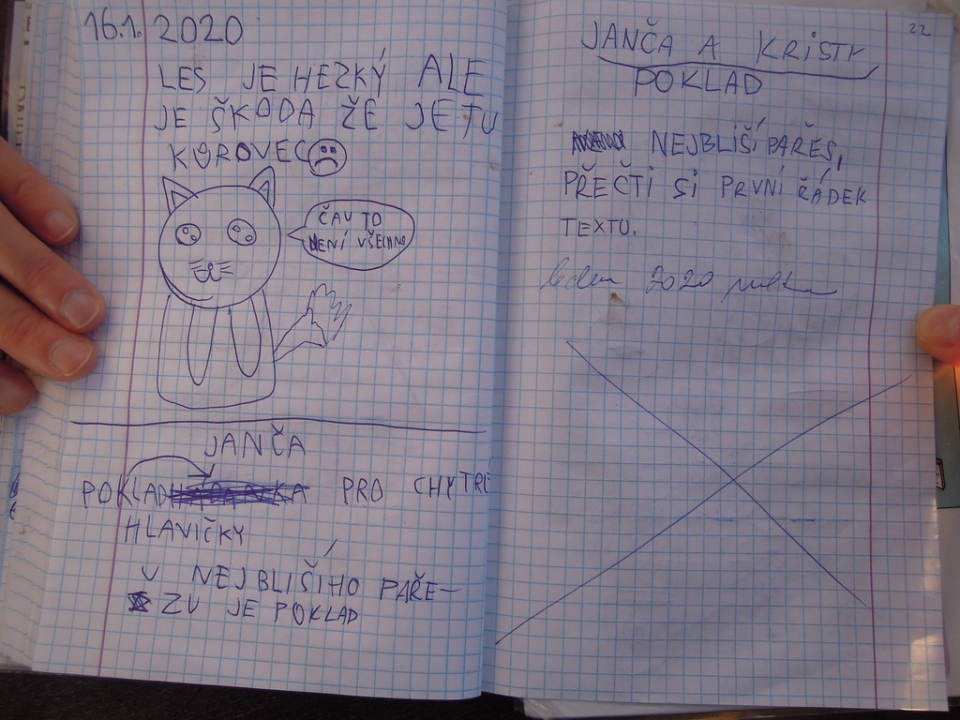 16.1. 2020
LES JE HEZKÝ ALE
JE ŠKODA ŽE JE TU
KŮROVEC
ČAV TO
NENÍ VŠECHNO
JANČA
POKLAD PRO CHYTRÉ
HLAVIČKY
U NEJBLIŠÍHO PAŘE-
ZU JE POKLAD
22
JANČA A KRISTY
POKLAD
NEJBLIŠÍ PAŘES,
PŘEČTI SI PRVNÍ ŘÁDEK
TEXTU.
leden 2020